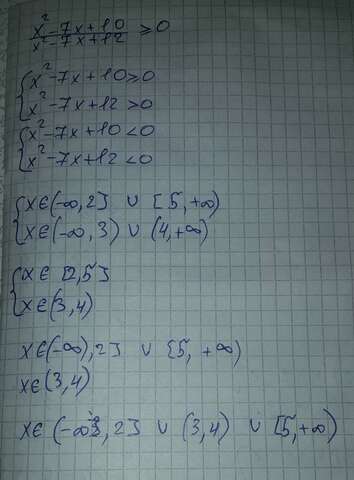 x² - 7x + 10 / x² - 7x + 12 ≥ 0
{ x² - 7x + 10 ≥ 0
{ x² - 7x + 12 > 0
{ x² - 7x + 10 < 0
{ x² - 7x + 12 < 0
{ x ∈ (-∞, 2] ∪ [5, +∞)
{ x ∈ (-∞, 3) ∪ (4, +∞)
{ x ∈ [2,5]
{ x ∈ (3,4)
x ∈ (-∞), 2] ∪ [5, +∞)
x ∈ (3,4)
x ∈ (-∞, 2] ∪ (3,4) ∪ [5, +∞)